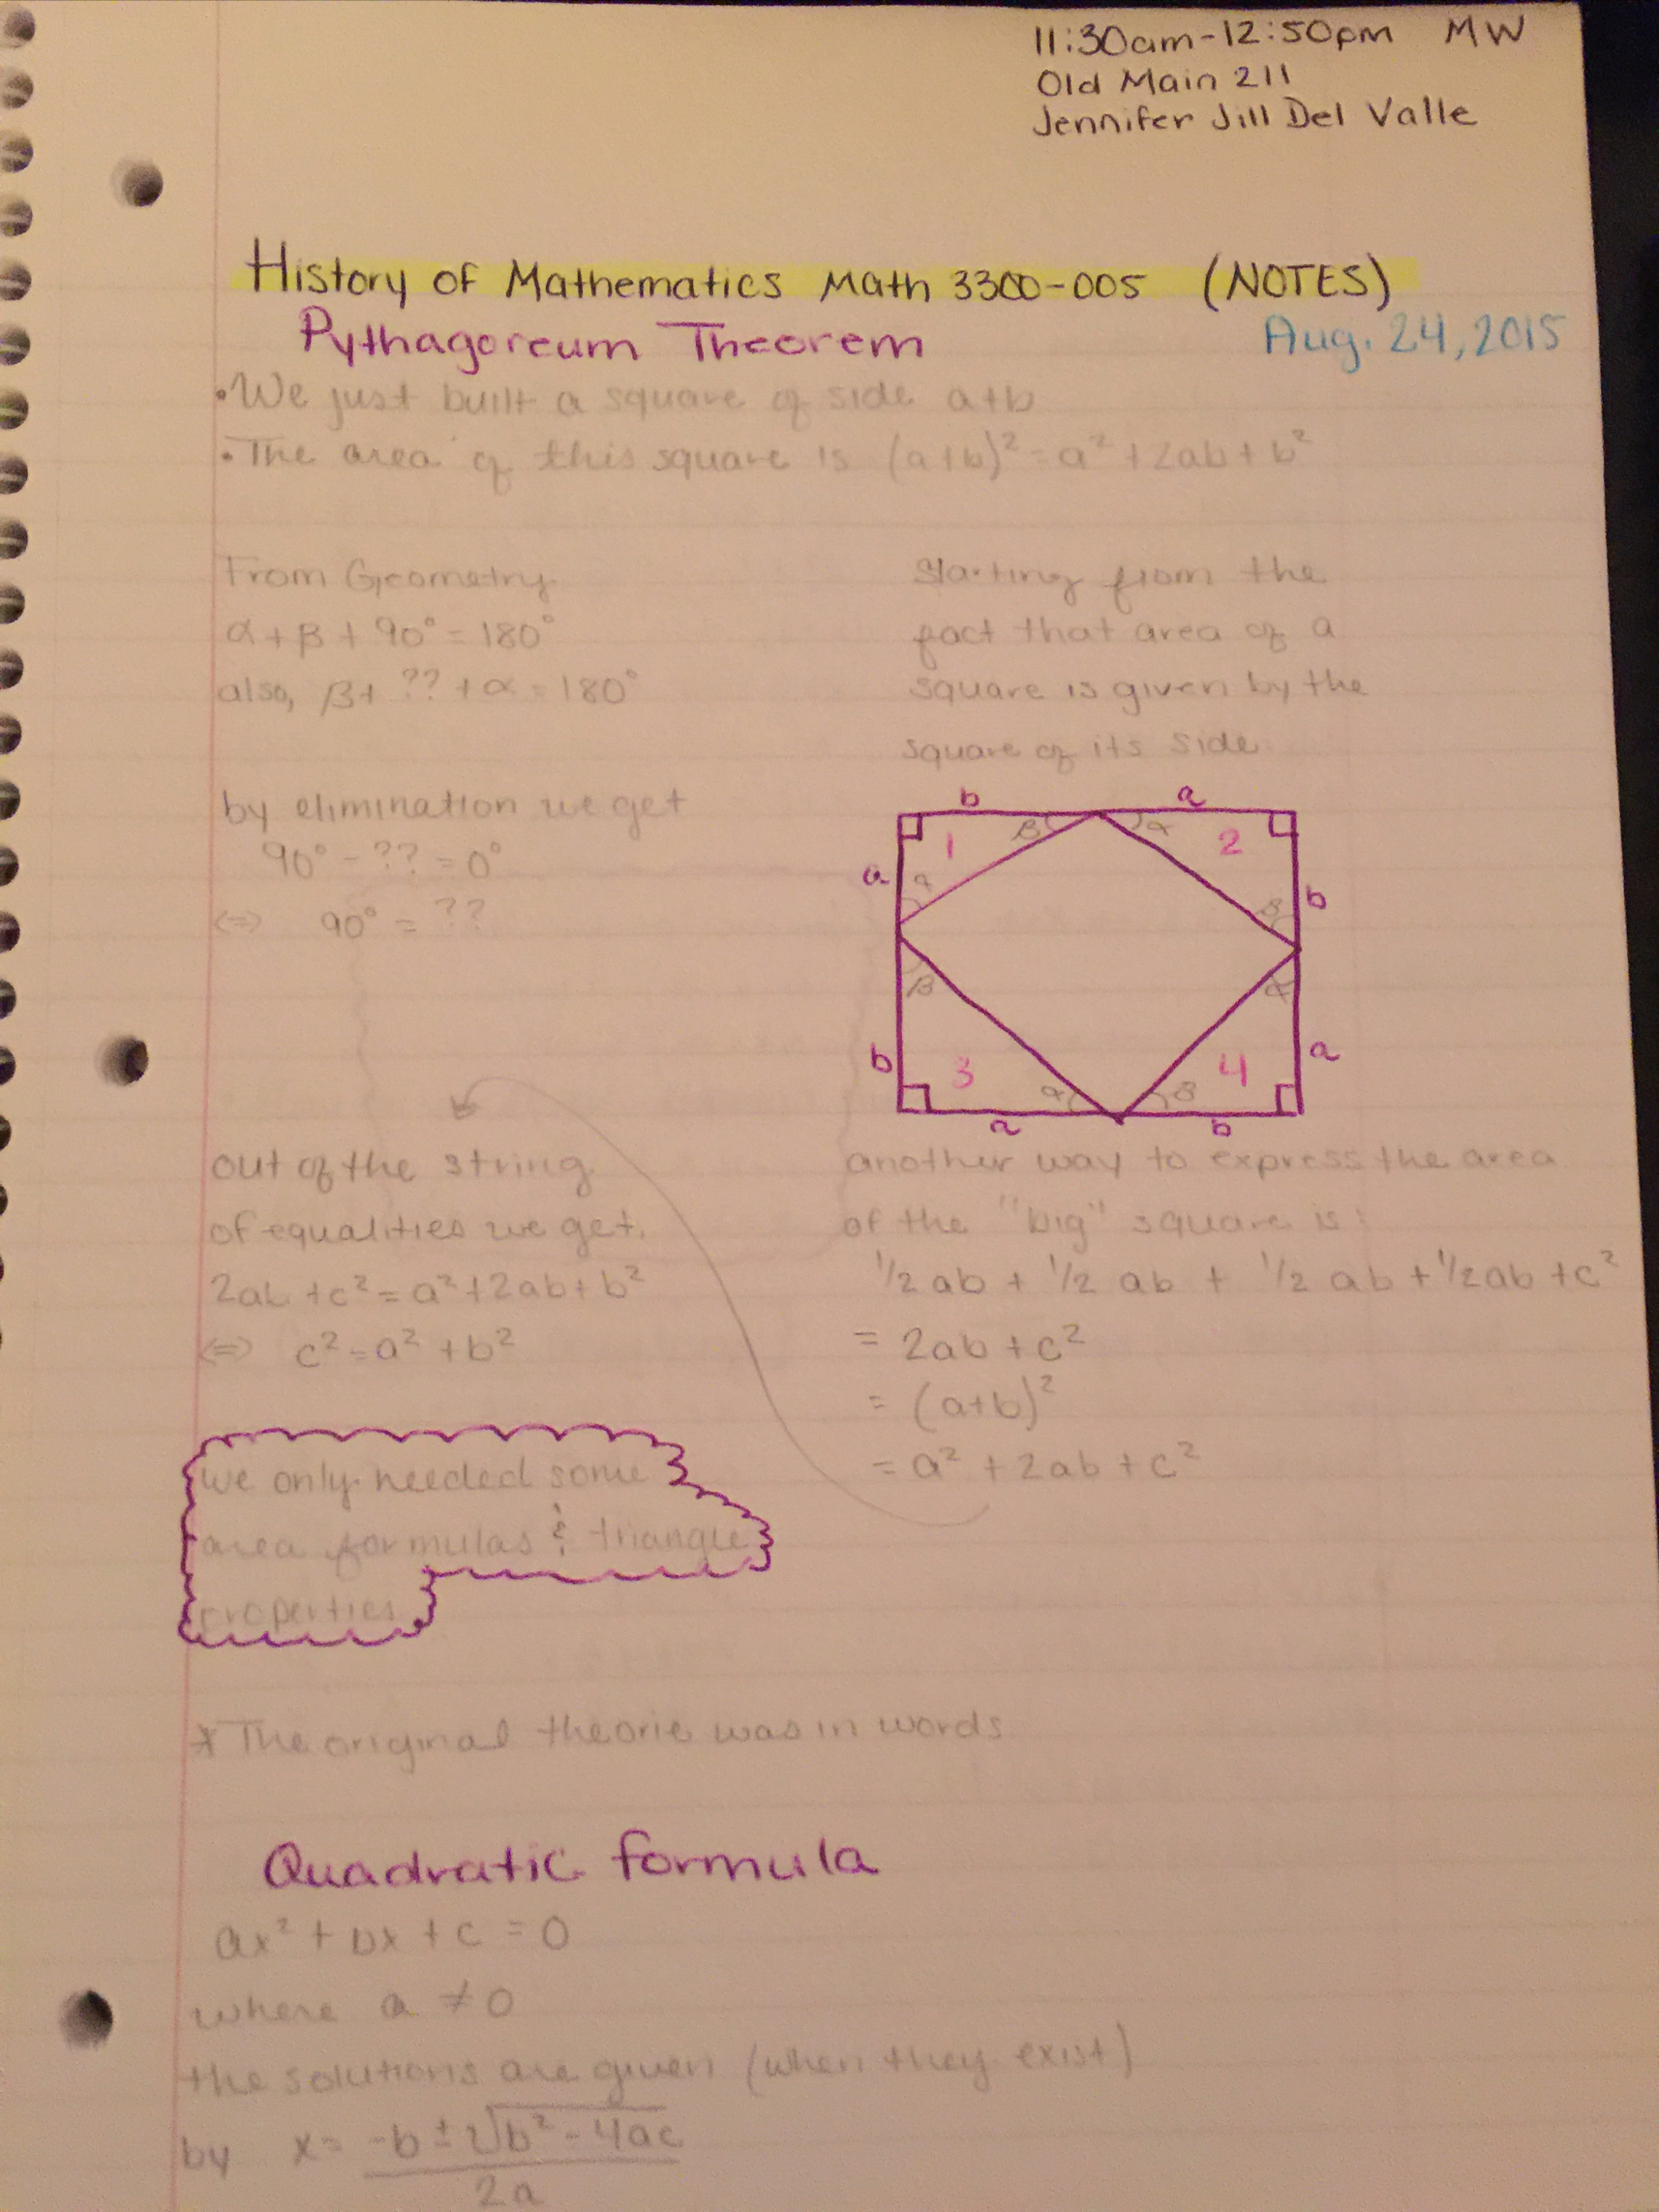 11:30am-12:50pm MW
Old Main 211
Jennifer Jill Del Valle
History of Mathematics Math 3300-005 (NOTES)
Pythagoreum Theorem Aug. 24, 2015
•We just built a square of side a+b
•The area of this square is (a+b)²=a²+2ab+b²
From Geometry
α+β+90°=180°
also, β+ ?? +α=180°
by elimination we get
90°-??=0°
<=> 90°=??
Starting from the
fact that area of a
square is given by the
square of its side
b a
β α
1 2
a α β b
β α
b 3 4 a
α β
a b
out of the string
of equalities we get.
2ab+c²=a²+2ab+b²
<=> c²=a²+b²
another way to express the area
of the "big" square is:
1/2 ab + 1/2 ab + 1/2 ab + 1/2ab + c²
= 2ab+c²
= (a+b)²
= a²+2ab+c²
we only needed some
area formulas & triangle
properties
* The original theorie was in words
Quadratic formula
ax²+bx+c=0
where a ≠ 0
the solutions are given (when they exist)
by x= -b±√b²-4ac
2a